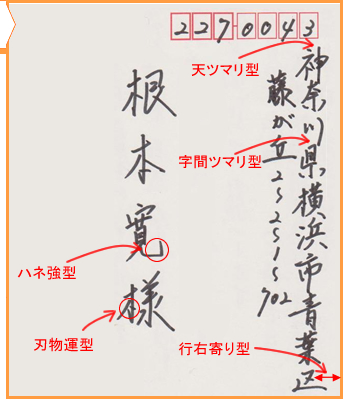 2270043
神奈川県横浜市青葉区
藤が丘2〜2〜1〜702
根本寛様
天ツマリ型
字間ツマリ型
ハネ強型
刃物運型
行右寄り型